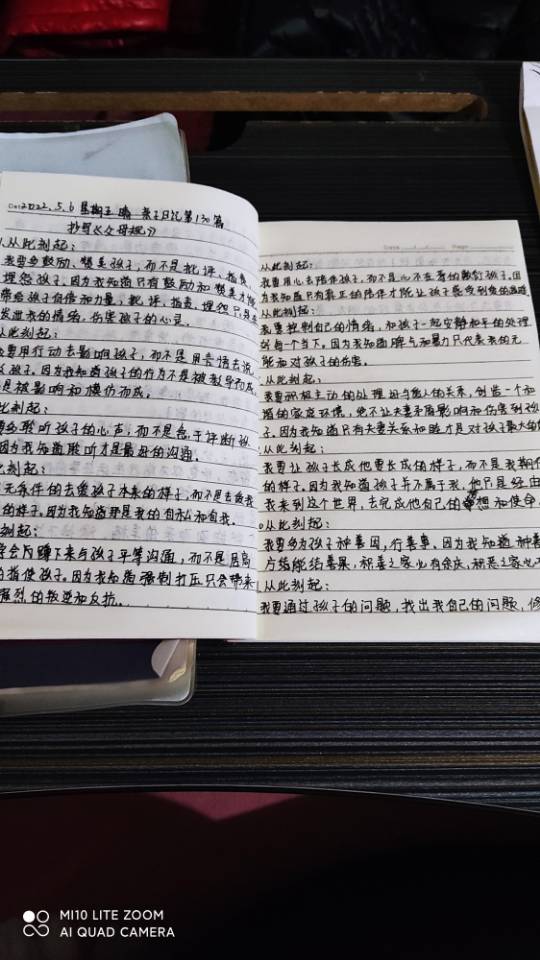 2022.5.6 星期五 晴 亲子日记第130篇
抄写《父母规》
1.从此刻起:
我要多鼓励、赞美孩子,而不是批评、指责、
埋怨孩子。因为我知道只有鼓励和赞美才能
带给孩子自信和力量,批评、指责、埋怨只是在
发泄我的情绪,伤害孩子的心灵。
从此刻起:
要用行动去影响孩子,而不是用言语去说
孩子。因为我知道孩子的行为不是被教导而成,
是被影响和模仿而成。
此刻起:
多聆听孩子的心声,而不是急于评断孩
因为我知道聆听才是最好的沟通。
此刻起:
无条件的去爱孩子本来的样子,而不是去爱我
的样子,因为我知道那是我的自私和自我。
刻起:
会蹲下来与孩子平等沟通,而不是居高
的指使孩子。因为我知道强制打压只会带来
强烈的叛逆和反抗。
Date Page
从此刻起:
我要用心去陪伴孩子,而不是心不在焉的敷衍孩子。因
为我知道只有真正的陪伴才能让孩子感受到爱的温暖
从此刻起:
我要控制自己的情绪,和孩子一起安静和平的处理
好每一个当下。因为我知道脾气和暴力只代表我的无
能和对孩子的伤害。
从此刻起:
我要积极主动的处理好与他人的关系,创造一个和
谐的家庭环境,绝不让夫妻矛盾影响和伤害到孩
子。因为我知道只有夫妻关系和睦才是对孩子最大的
从此刻起:
我要让孩子长成他要长成的样子,而不是我期待
的样子。因为我知道孩子并不属于我,他只是经由
我来到这个世界,去完成他自己的梦想和使命。
从此刻起:
我要多为孩子种善因,行善事。因为我知道种善
方结能结善果,积善之家必有余庆,积恶之家必
从此刻起:
我要通过孩子的问题,找出我自己的问题,修
MI10 LITE ZOOM
AI QUAD CAMERA